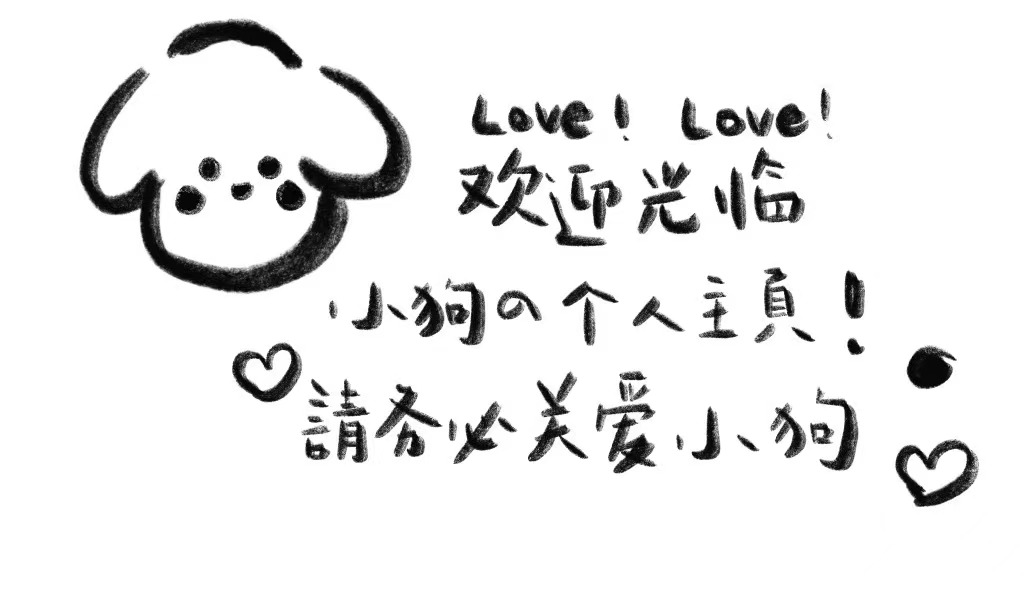 Love! Love!
欢迎光临
小狗の个人主頁!
請务必关爱小狗